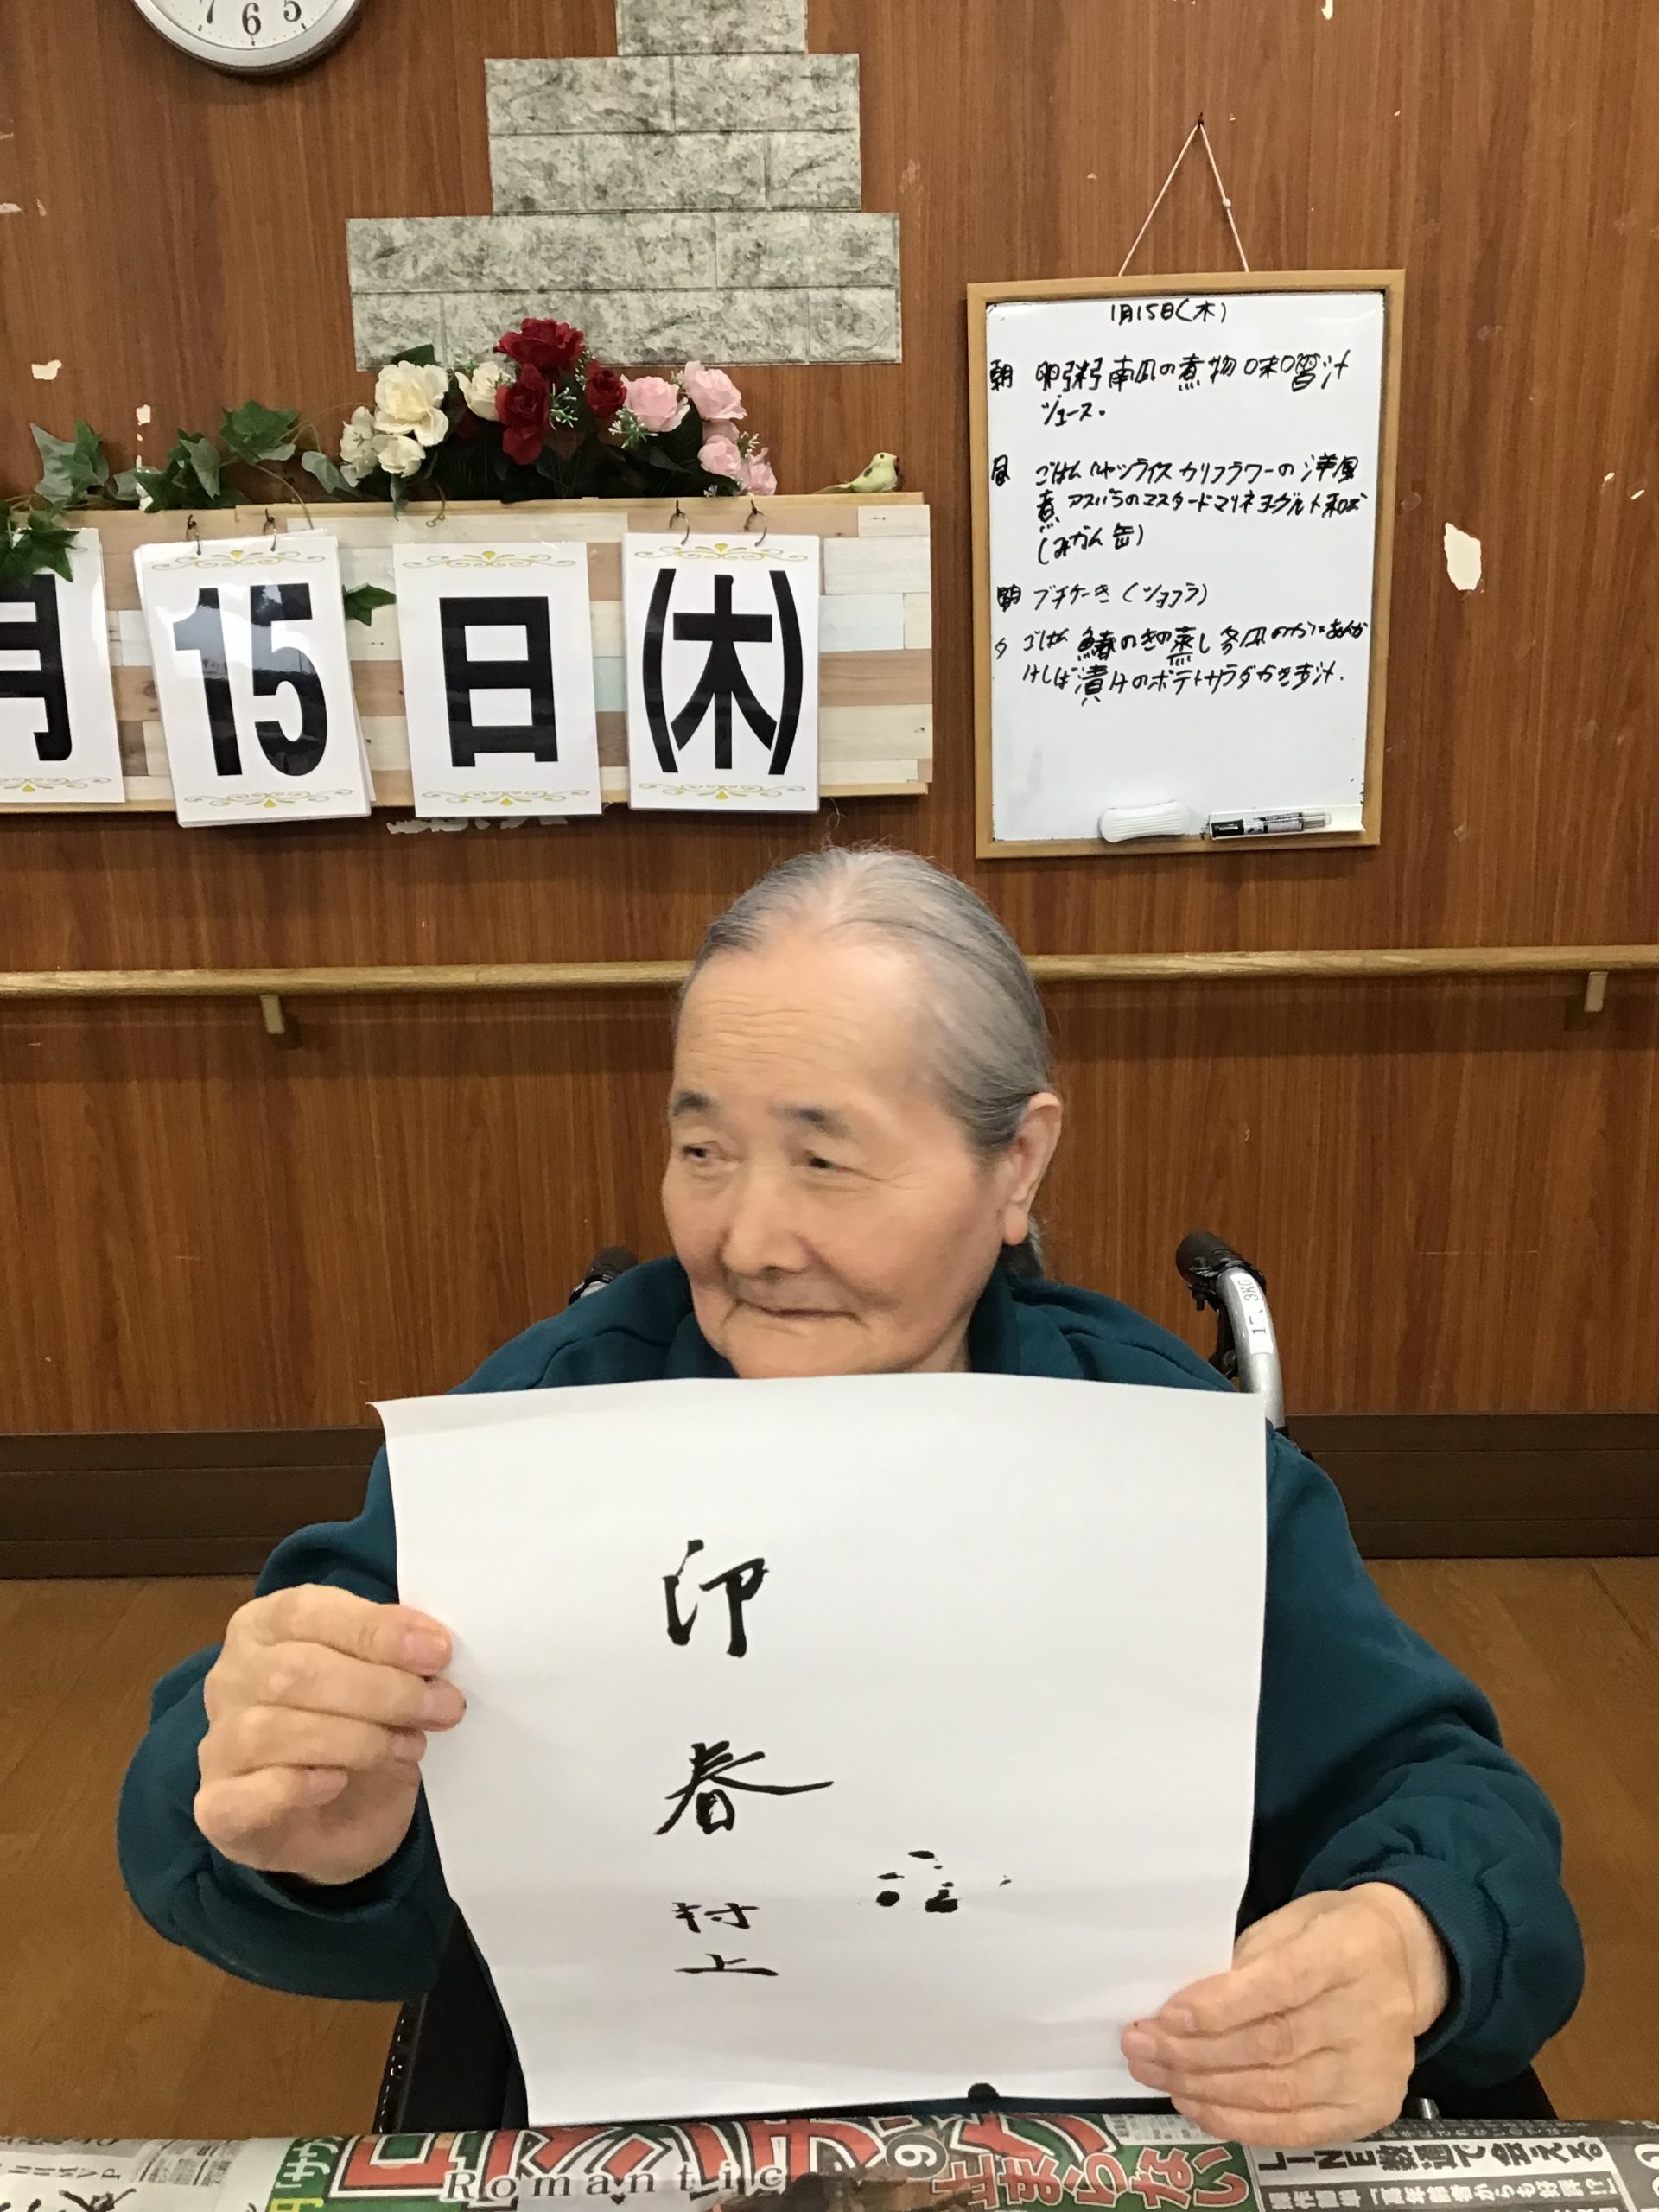 7 6 5
月 15 日 (木)
1月15日(木)
朝 卵粥 南瓜の煮物 味噌汁
ジュース。
昼 ごはん ハヤシライス カリフラワーの洋風
煮 アスパラのマスタードマリネ ヨーグルト和え
(みかん缶)
プチケーき(ショコラ)
夕 ごはん 鰆のきの蒸し 冬瓜のかにあんか
け しば漬けのポテトサラダ かき玉汁.
印
春
村
上
Romantic
止まらない
LINE